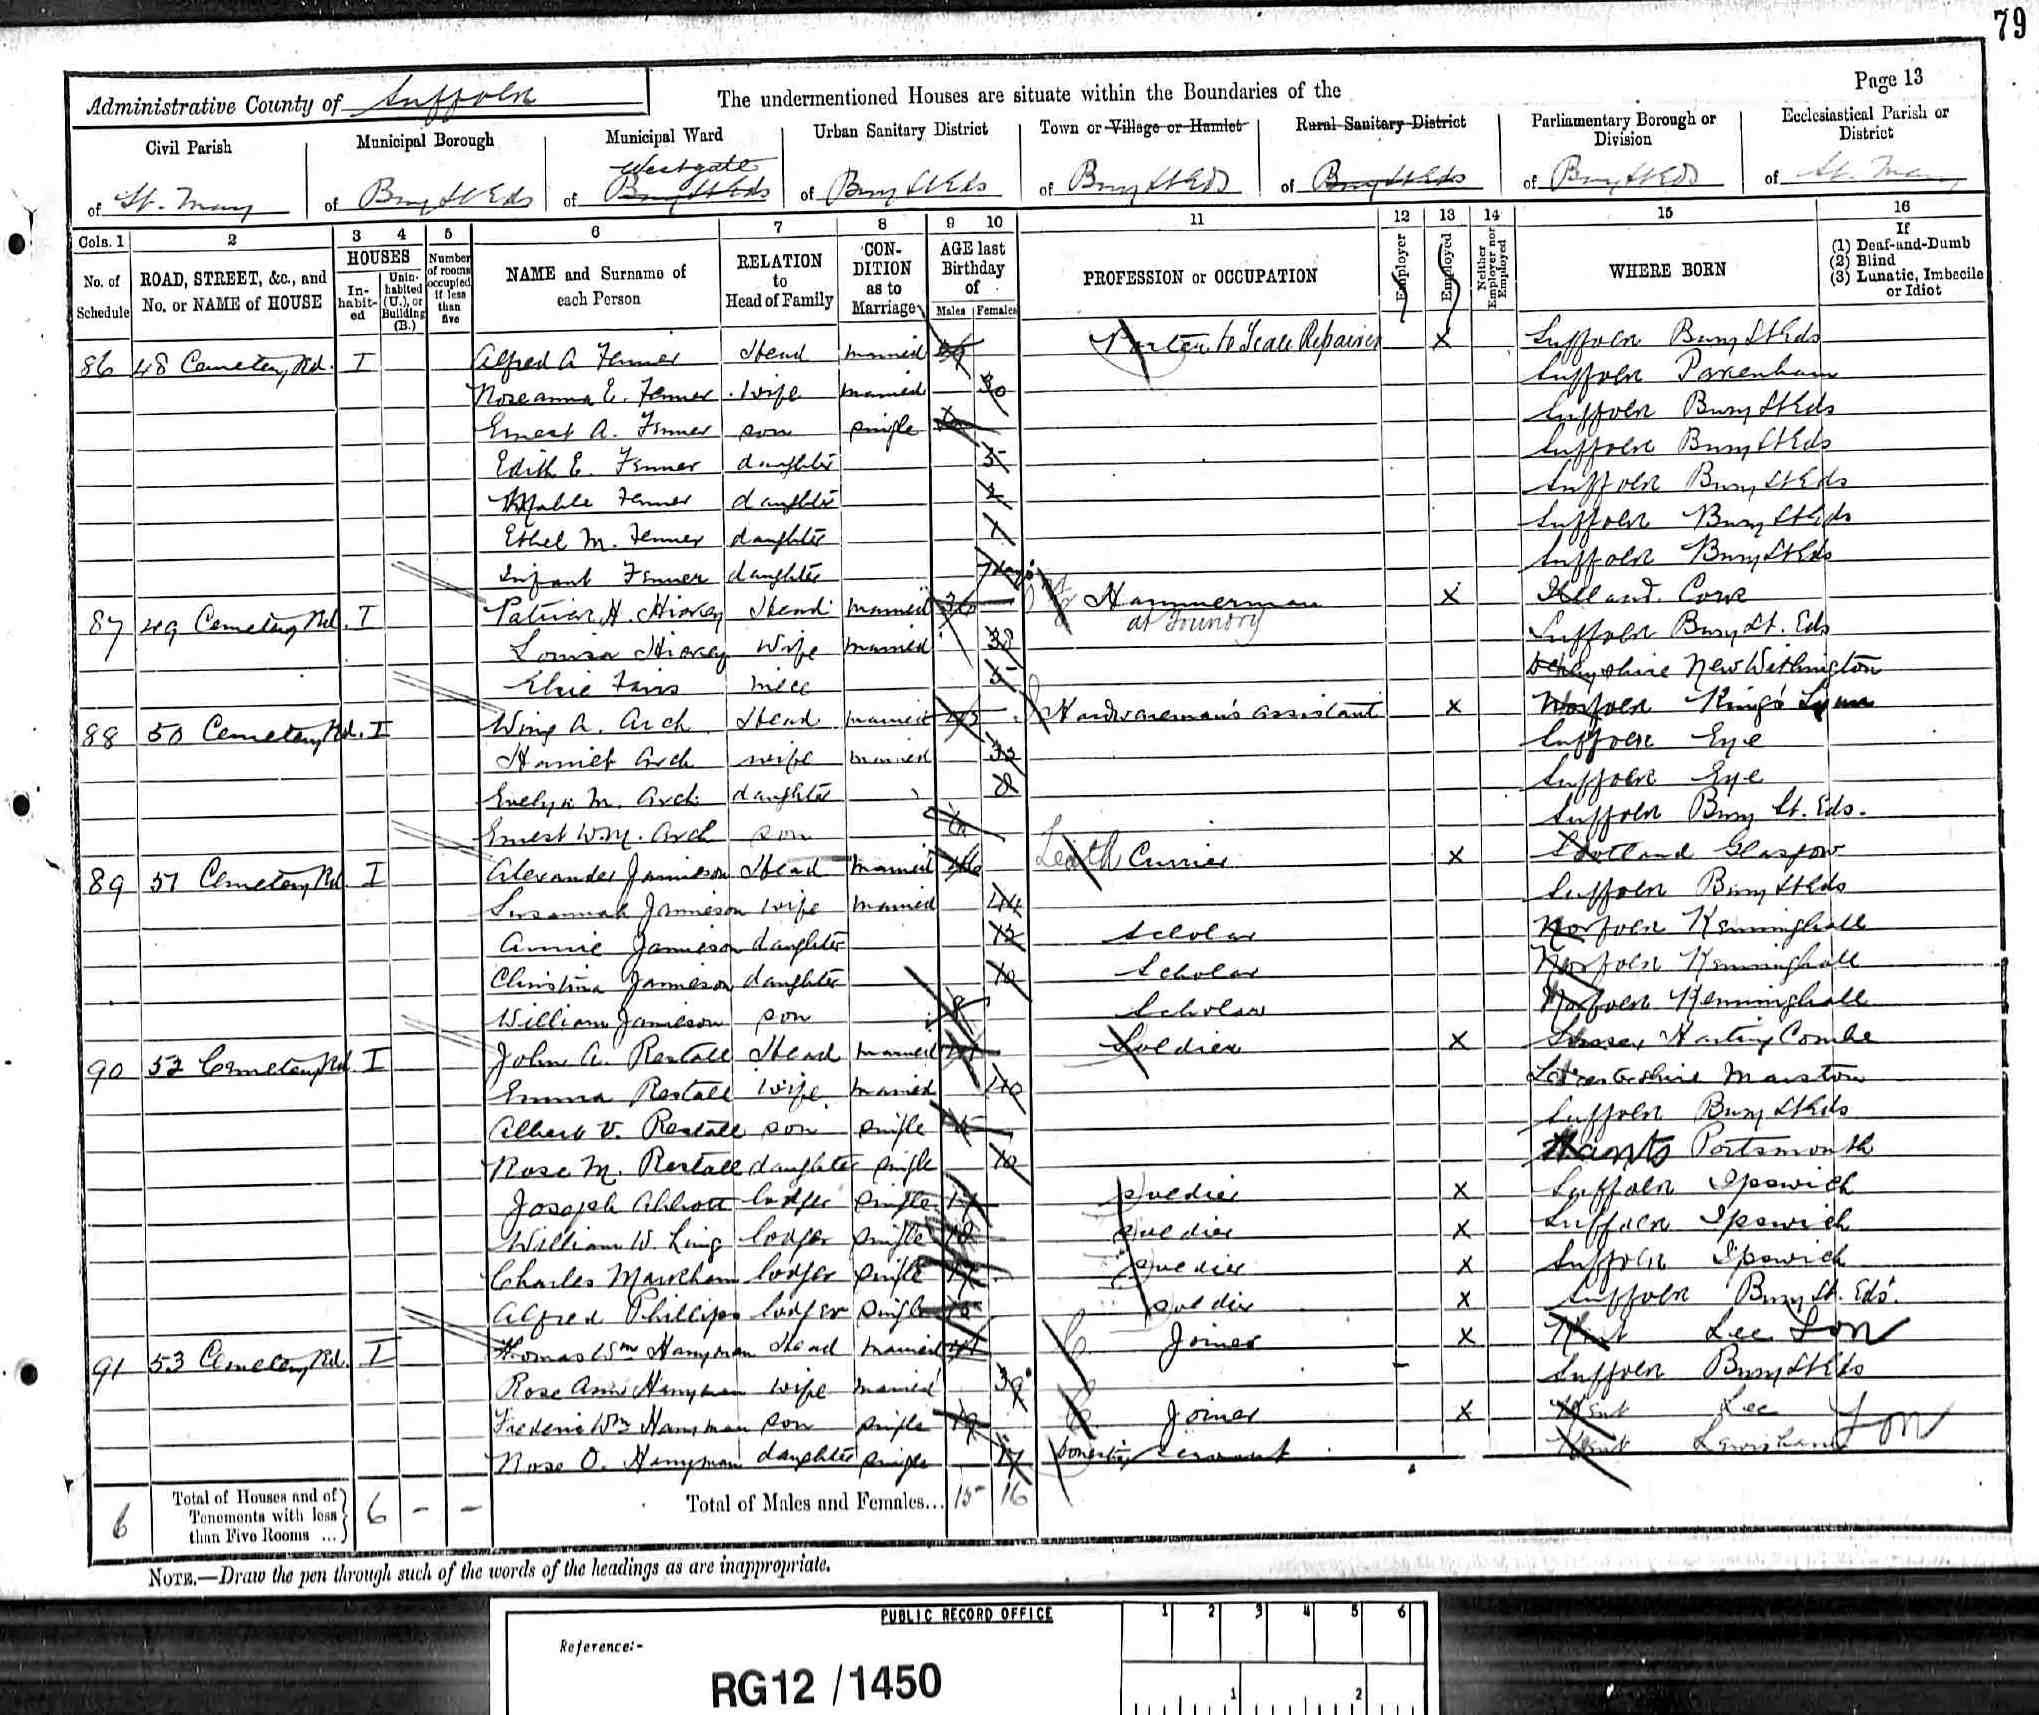 79
Page 13
Administrative County of Suffolk
The undermentioned Houses are situate within the Boundaries of the
Civil Parish
Municipal Borough
Municipal Ward
Urban Sanitary District
Town or Village or Hamlet
Rural Sanitary District
Parliamentary Borough or Division
Ecclesiastical Parish or District
of St. Mary
of Bury St Eds
Westgate
of Bury St Eds
of Bury St Eds
of Bury St Eds
of Bury St Eds
of Bury St Eds
of St. Mary
Cols. 1 2 3 4 5 6 7 8 9 10 11 12 13 14 15 16
No. of Schedule
ROAD, STREET, &c., and No. or NAME of HOUSE
HOUSES
In-habit-ed
Unin-habited (U.), or Building (B.)
Number of rooms occupied if less than five
NAME and Surname of each Person
RELATION to Head of Family
CON-DITION as to Marriage
AGE last Birthday of
Males
Females
PROFESSION or OCCUPATION
Employer
Employed
Neither Employer nor Employed
WHERE BORN
If
(1) Deaf-and-Dumb
(2) Blind
(3) Lunatic, Imbecile or Idiot
86 48 Cemetery Rd. I Alfred A Fenner Head married Porter to Scale Repairer X Suffolk Bury St Eds
Roseanna E. Fenner wife married 30 Suffolk Pakenham
Ernest A. Fenner son single Suffolk Bury St Eds
Edith E. Fenner daughter 5 Suffolk Bury St Eds
Mable Fenner daughter 2 Suffolk Bury St Eds
Ethel M. Fenner daughter 1 Suffolk Bury St Eds
Infant Fenner daughter 7 days Suffolk Bury St Eds
87 49 Cemetery Rd. I Patrick H. Hickey Head married 36 Hammerman X Ireland. Cork
at Foundry
Louisa Hickey Wife married 38 Suffolk Bury St. Eds
Elsie niece 5 Derbyshire New Withington
88 50 Cemetery Rd. I A. Arch Head married 45 Hardwareman's assistant X Norfolk King's Lynn
Harriet Arch wife married 32 Suffolk Eye
Evelyn M. Arch daughter 8 Suffolk Eye
Ernest Wm. Arch son 6 Suffolk Bury St. Eds.
89 51 Cemetery Rd. I Alexander Jamieson Head married 46 Leath Currier X Scotland Glasgow
Susannah Jamieson wife married 44 Suffolk Bury St Eds
Annie Jamieson daughter 12 Scholar Norfolk Kenninghall
Christina Jamieson daughter 10 Scholar Norfolk Kenninghall
William Jamieson son 8 Scholar Norfolk Kenninghall
90 52 Cemetery Rd. I John A. Restall Head married 41 Soldier X Sussex Harting Combe
Emma Restall Wife married 40 Marston
Albert V. Restall son single 15 Suffolk Bury St Eds
Rose M. Restall daughter single 10 Hants Portsmouth
Joseph Abbott lodger single soldier X Suffolk Ipswich
William W. Ling lodger single 18 soldier X Suffolk Ipswich
Charles Markham lodger single soldier X Suffolk Ipswich
Alfred Phillips lodger single 18 soldier X Suffolk Bury St. Eds.
91 53 Cemetery Rd. I Thomas Wm Hanyman Head married 41 Joiner X Kent Lee Lon
Rose Ann Hanyman wife married 39 Suffolk Bury St Eds
Frederic Wm Hanyman son single 19 Joiner X Kent Lee Lon
Rose O. Hanyman daughter single 17 Domestic servant Kent Lewisham
6 Total of Houses and of Tenements with less than Five Rooms ... 6 - - Total of Males and Females... 15 16
NOTE.—Draw the pen through such of the words of the headings as are inappropriate.
PUBLIC RECORD OFFICE
1 2 3 4 5 6
Reference:-
RG12 /1450
1 2